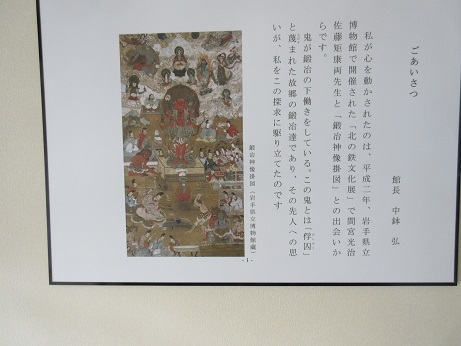 ごあいさつ
館長　中鉢　弘
私が心を動かされたのは、平成二年、岩手県立
博物館で開催された「北の鉄文化展」で間宮光治
佐藤矩康両先生と「鍛冶神像掛図」との出会いか
らです。
鬼が鍛冶の下働きをしている。この鬼とは「俘囚」
と蔑まれた故郷の鍛冶達であり、その先人への思
いが、私をこの探求に駆り立てたのです
鍛冶神像掛図（岩手県立博物館蔵）
- 1 -